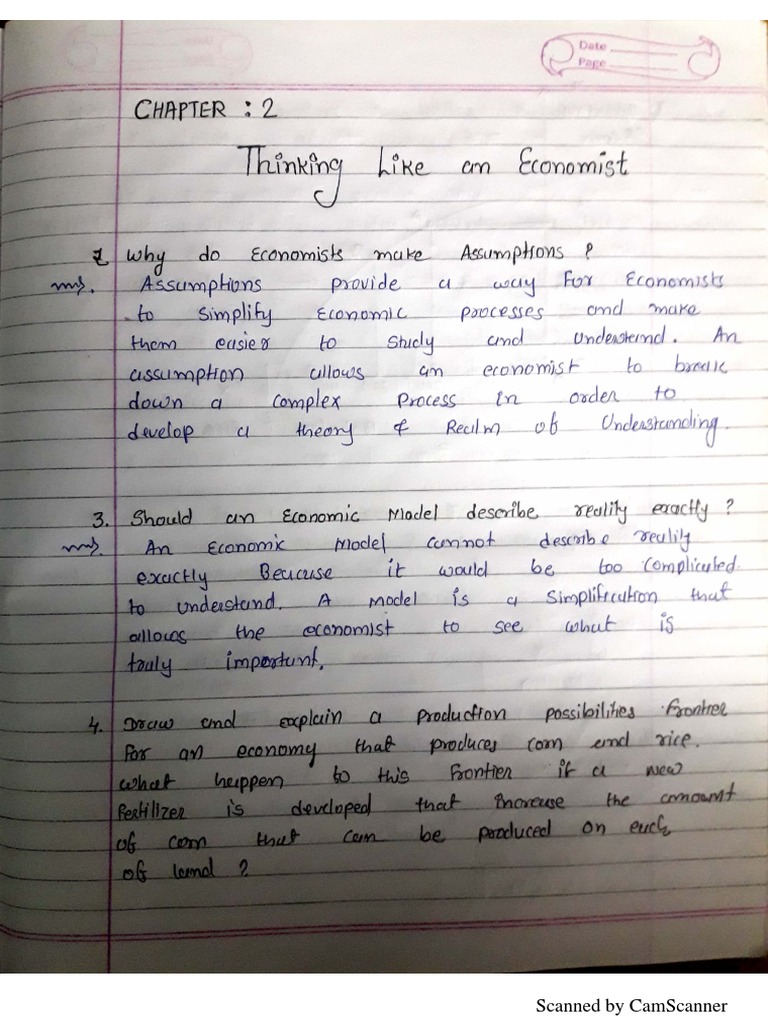 Date
Page
CHAPTER : 2
Thinking Like an Economist
2. Why do Economists make Assumptions ?
Ans. Assumptions provide a way For Economists
to Simplify Economic processes and make
them easier to study and understand. An
assumption allows an economist to break
down a complex Process In order to
develop a theory & Realm of Understanding.
3. Should an Economic Model describe reality exactly ?
Ans. An Economic Model cannot describe reality
exactly Beacause it would be too complicated
to understand. A Model is a simplification that
allows the economist to see what is
truly important.
4. Draw and explain a production possibilities Frontier
For an economy that produces corn and rice.
what happen to this Frontier if a new
Fertilizer is developed that Increase the amount
of corn that can be produced on each
of land ?
Scanned by CamScanner